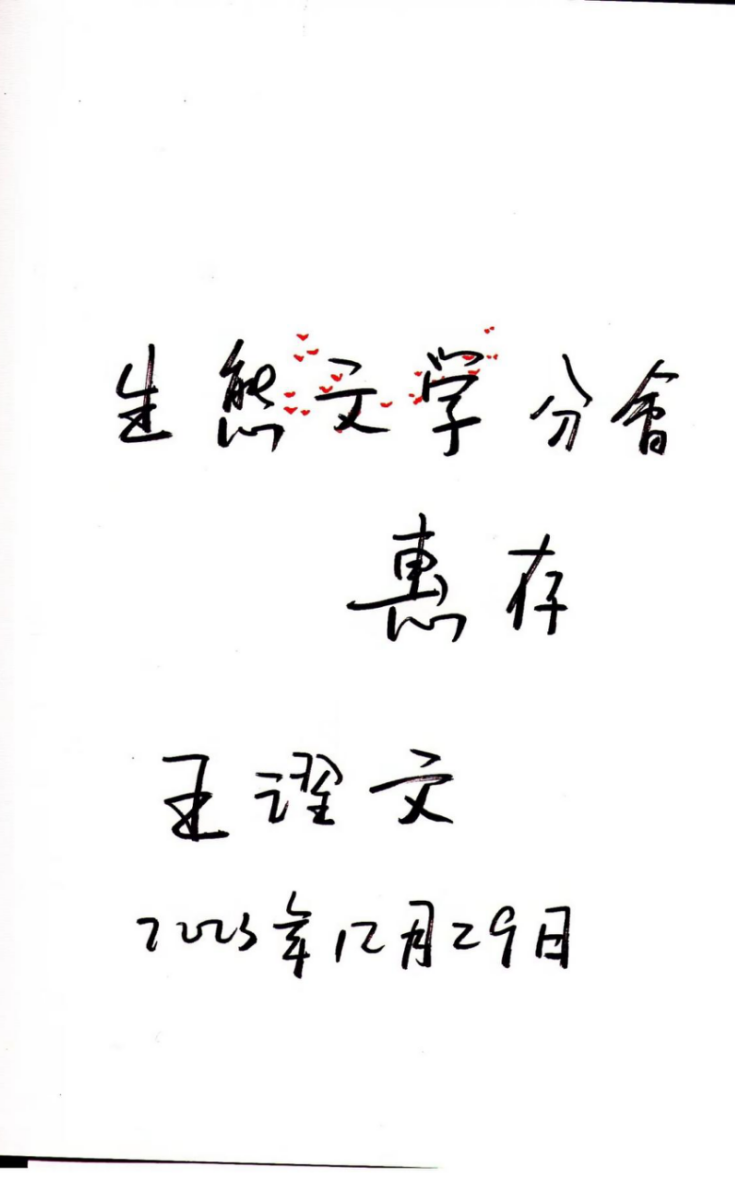 生態文学分會
惠存
王
文
2023年12月29日